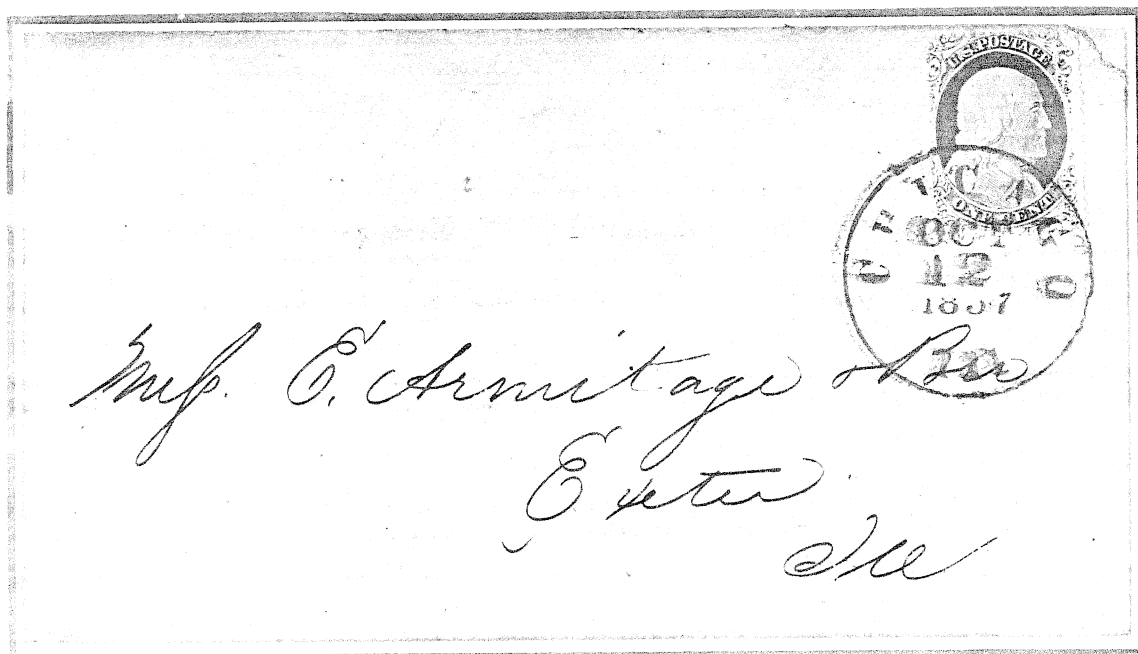 U.S. POSTAGE
ONE CENT
CHICAGO
OCT
12
1857
Mess. E. Armitage & Bro
Exeter
Ill